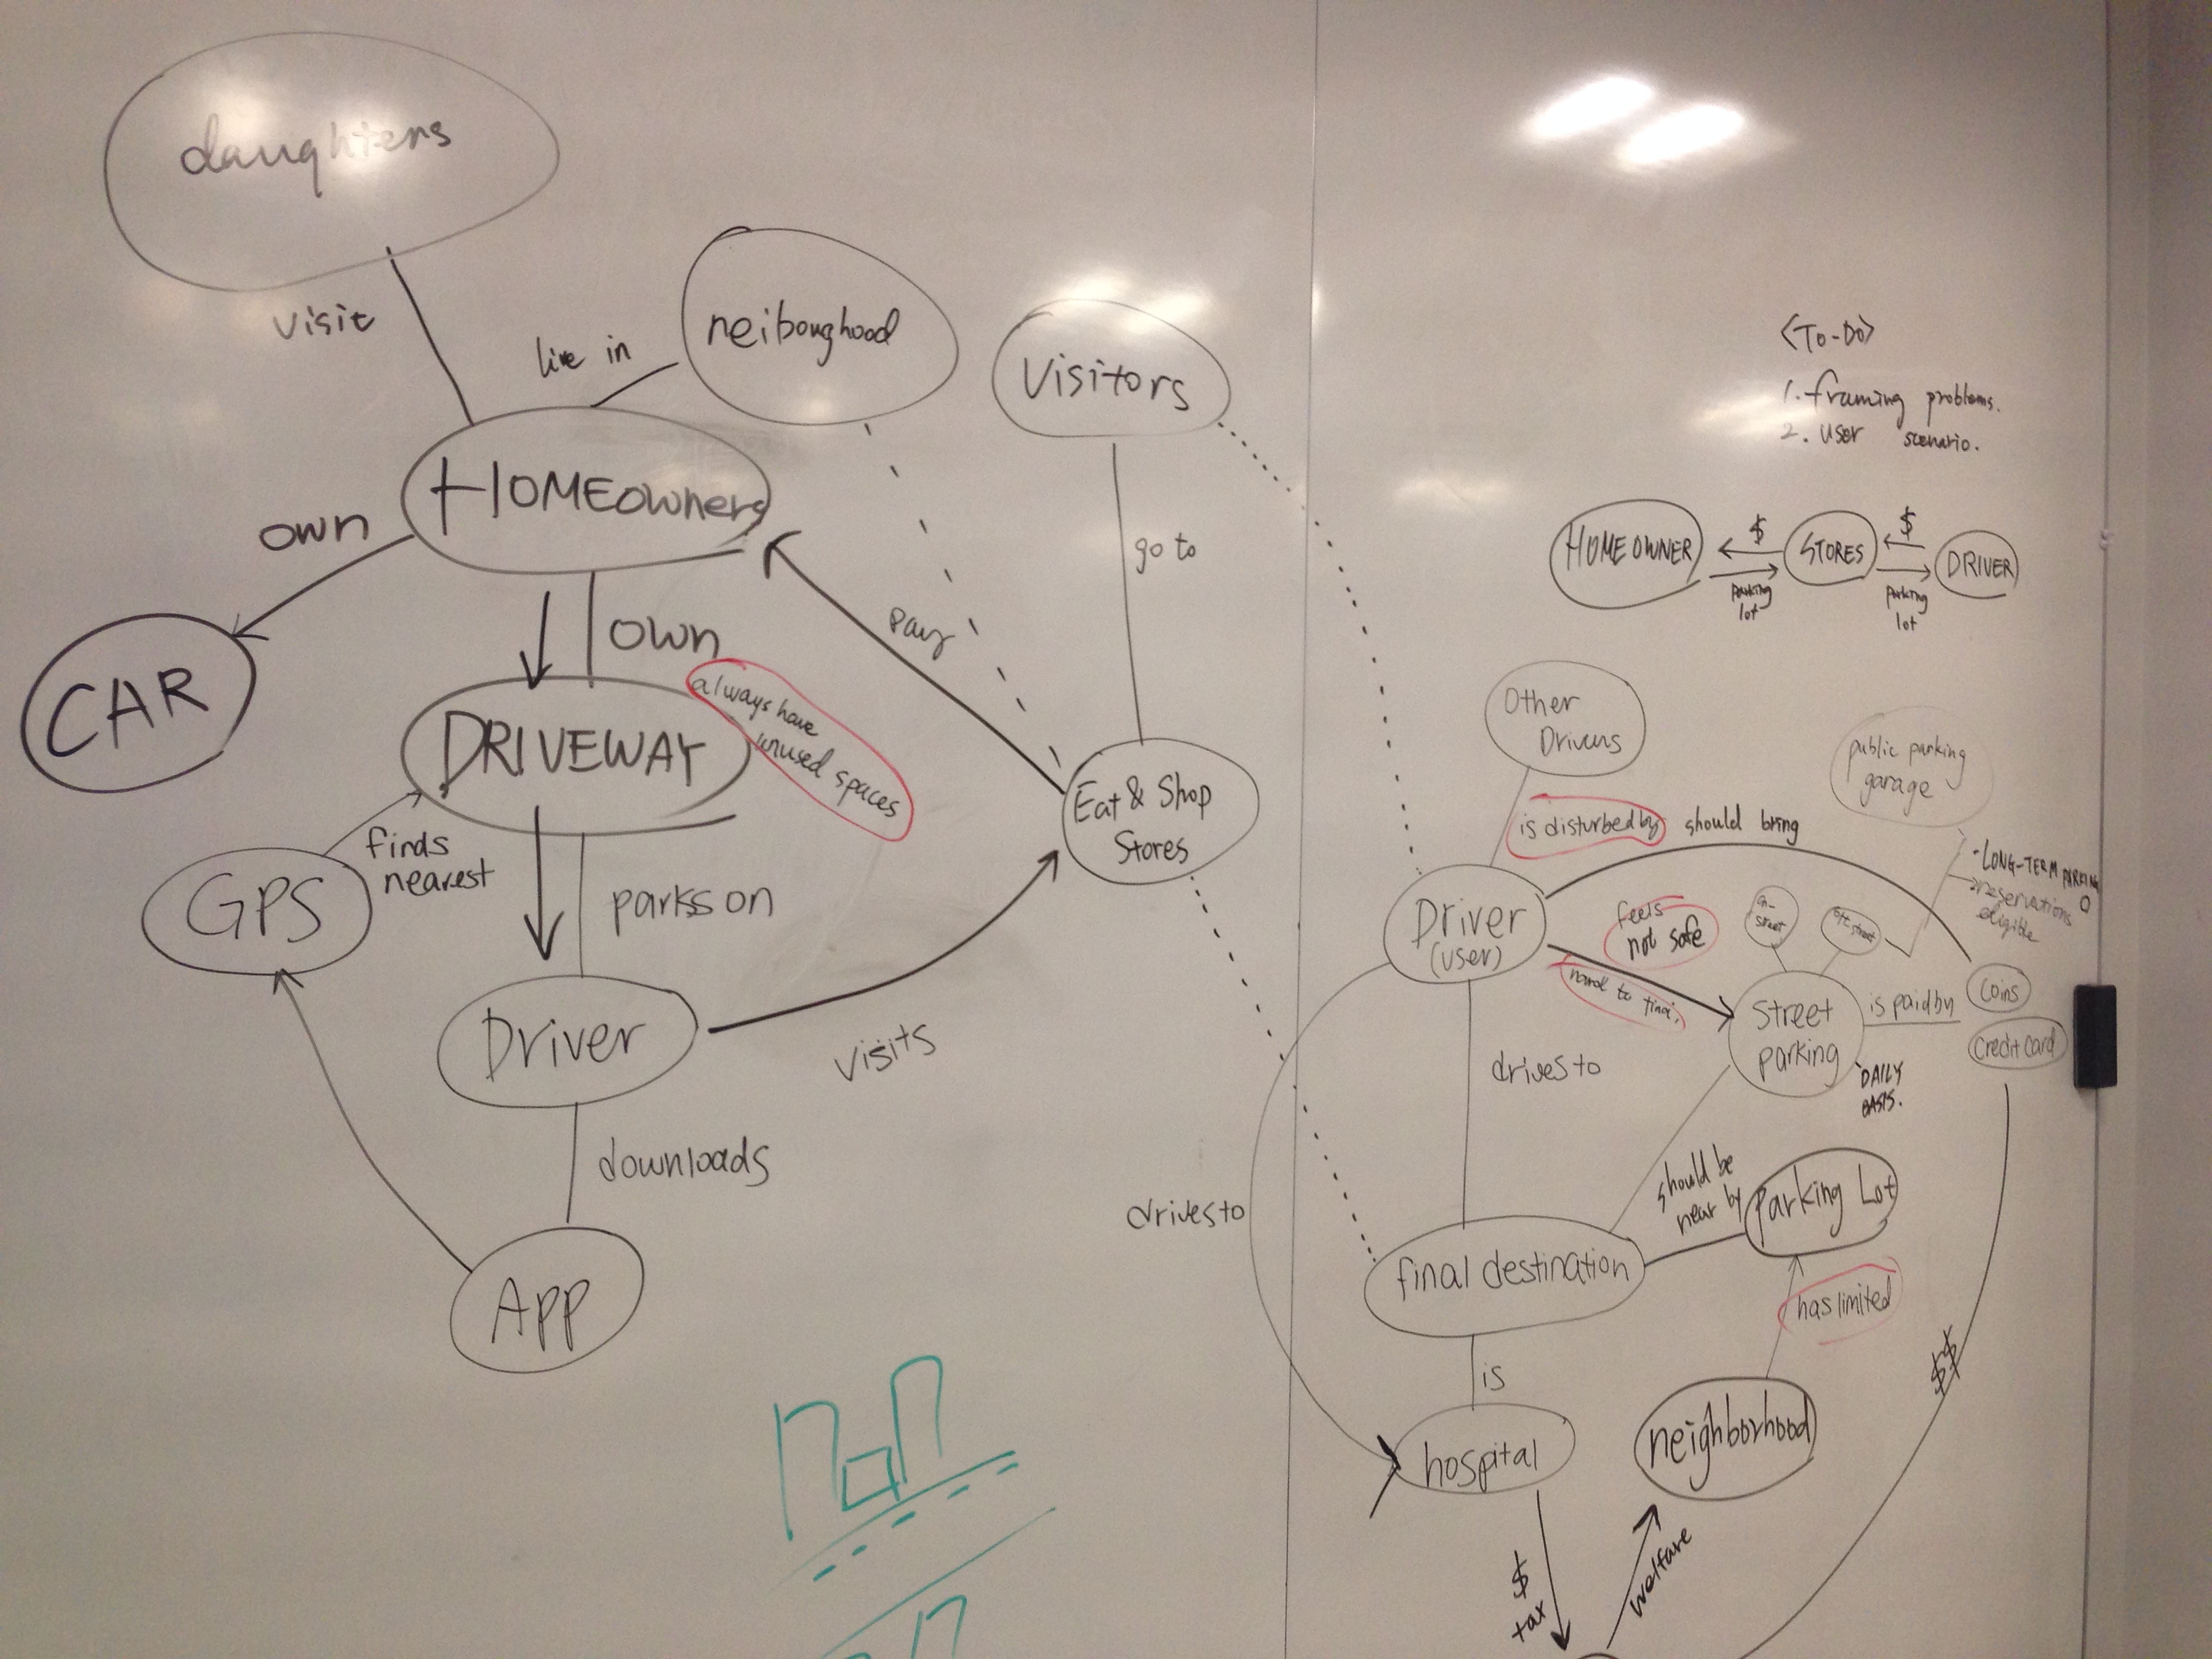 daughters
visit
live in
neiboughood
Visitors
HOMEowners
own
own
CAR
pay
go to
DRIVEWAY
always have
unused spaces
Eat & Shop
Stores
finds
nearest
GPS
parks on
Driver
visits
downloads
App
<To-Do>
1. framing problems.
2. user scenario.
HOMEOWNER
$
STORES
$
DRIVER
parking
lot
parking
lot
Other
Drivers
public parking
garage
is disturbed by
should bring
- LONG-TERM PARKING
reservations
eligible
Driver
(user)
feels
not safe
on-
street
off street
hard to find.
Street
parking
is paid by
coins
Credit Card
DAILY
BASIS.
drives to
drives to
should be
near by
Parking Lot
final destination
has limited
is
hospital
neighborhood
$$
$
tax
welfare